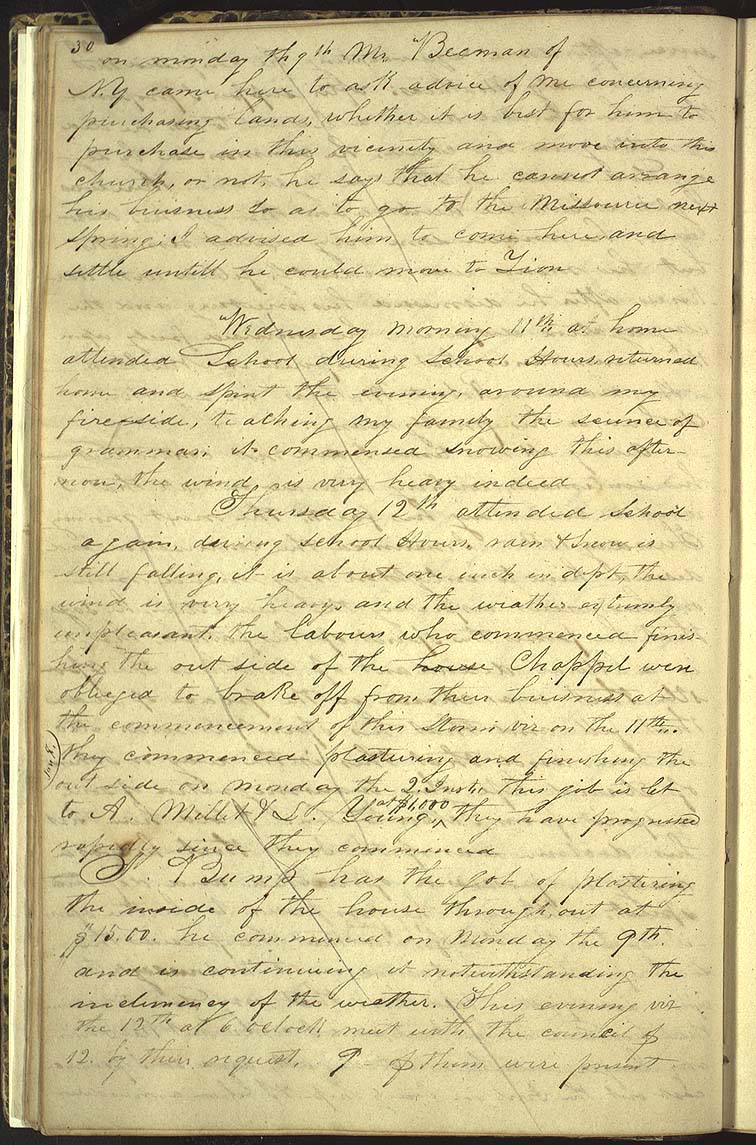 30
on monday th 9th Mr. Beeman of
N.Y came here to ask advice of me concerning
purchasing lands, whether it is best for him to
purchase in this vicinity and move into this
church, or not, he says that he cannot arrange
his buisness so as to go to the Missouri next
Spring; I advised him to come here, and
settle untill he could move to Zion
Wednesday morning 11th at home
attended School during School Hours, returned
home and spent the evening, around my
fire-side, teaching my family the science of
grammar; it commensed snowing this after-
noon, the wind is very heavy indeed
Thursday 12th attended School
again, during school Hours, rain & Snow is
still falling, it is about one inch in dept, the
wind is very heavy, and the weather extremly
unpleasant, the labours who commenced finis-
hing the out side of the house Chappel were
oblieged to brake off from their buisness at
the commencement of this storm viz on the 11th.
they commenced plasturing and finishing the
out side on Monday the 2, Inst. this job is let
at $1,000
to A. Millet & L. Young, they have progressed
rapidly since they commenced
J. Bump has the job of plastering
the inside of the house through out at
$15.00. he commenced on Monday the 9th.
and is continueing it notwithstanding the
inclemency of the weather. This evening viz
the 12th at 6 oclock meet with the council of
12. by their request, 9 of them were present